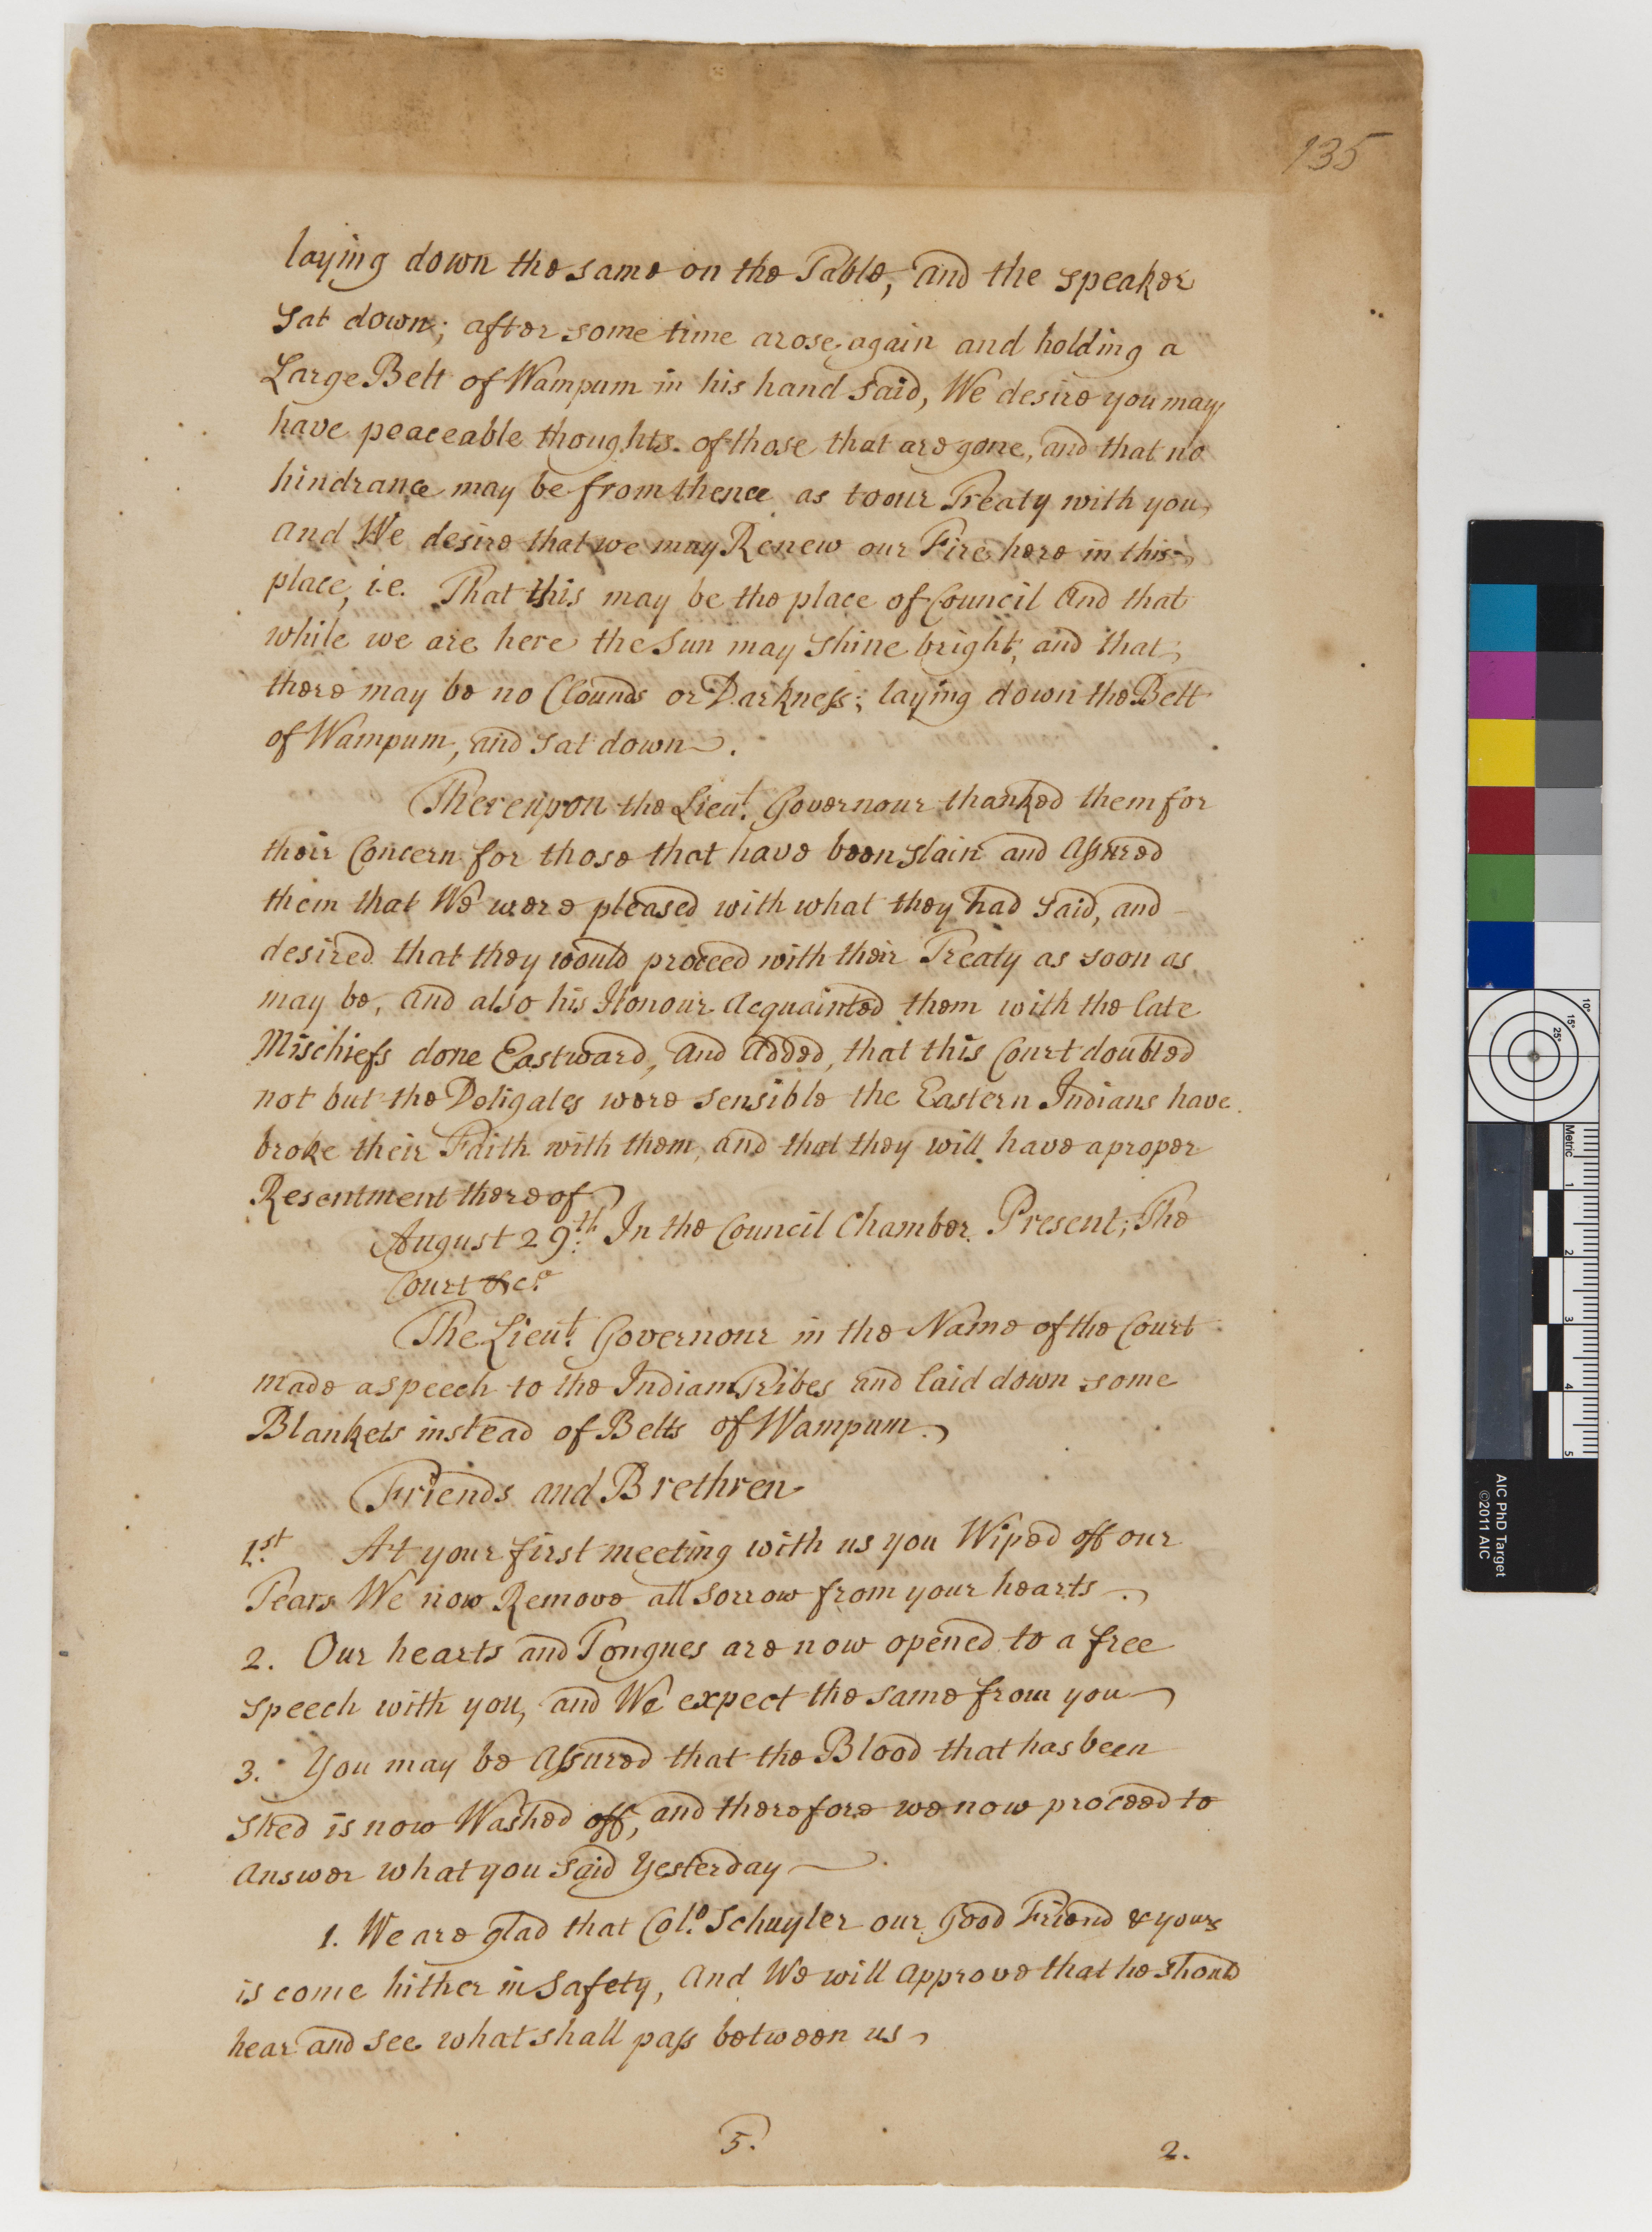 135
laying down the same on the Table, and the speaker
sat down; after some time arose again and holding a
Large Belt of Wampum in his hand said, We desire you may
have peaceable thoughts of those that are gone, and that no
hindrance may be from thence as to our Treaty with you,
and We desire that we may Renew our Fire here in this
place, i.e. That this may be the place of Council and that
while we are here the Sun may shine bright, and that
there may be no Clounds or Darkness; laying down the Belt
of Wampum, and sat down.
Thereupon the Lieut. Governour thanked them for
their Concern for those that have been slain and Assured
them that We were pleased with what they had said, and
desired that they would proceed with their Treaty as soon as
may be, and also his Honour Acquainted them with the late
Mischiefs done Eastward, and added, that this Court doubted
not but the Deligates were sensible the Eastern Indians have
broke their Faith with them, and that they will have a proper
Resentment thereof
August 29th. In the Council Chamber. Present; The
Court &c.a
The Lieut. Governour in the Name of the Court
made a speech to the Indian Tribes and laid down some
Blankets instead of Belts of Wampum.
Friends and Brethren
1st. At your first meeting with us you Wiped off our
Tears We now Remove all sorrow from your hearts.
2. Our hearts and Tongues are now opened to a free
speech with you, and We expect the same from you
3. You may be Assured that the Blood that has been
shed is now Washed off, and therefore we now proceed to
answer what you said Yesterday
1. We are glad that Colo. Schuyler our Good Friend & yours
is come hither in Safety, and We will approve that he should
hear and see what shall pass between us
5.
2.
AIC PhD Target
©2011 AIC
Metric
1
2
3
4
5
10°
15°
25°